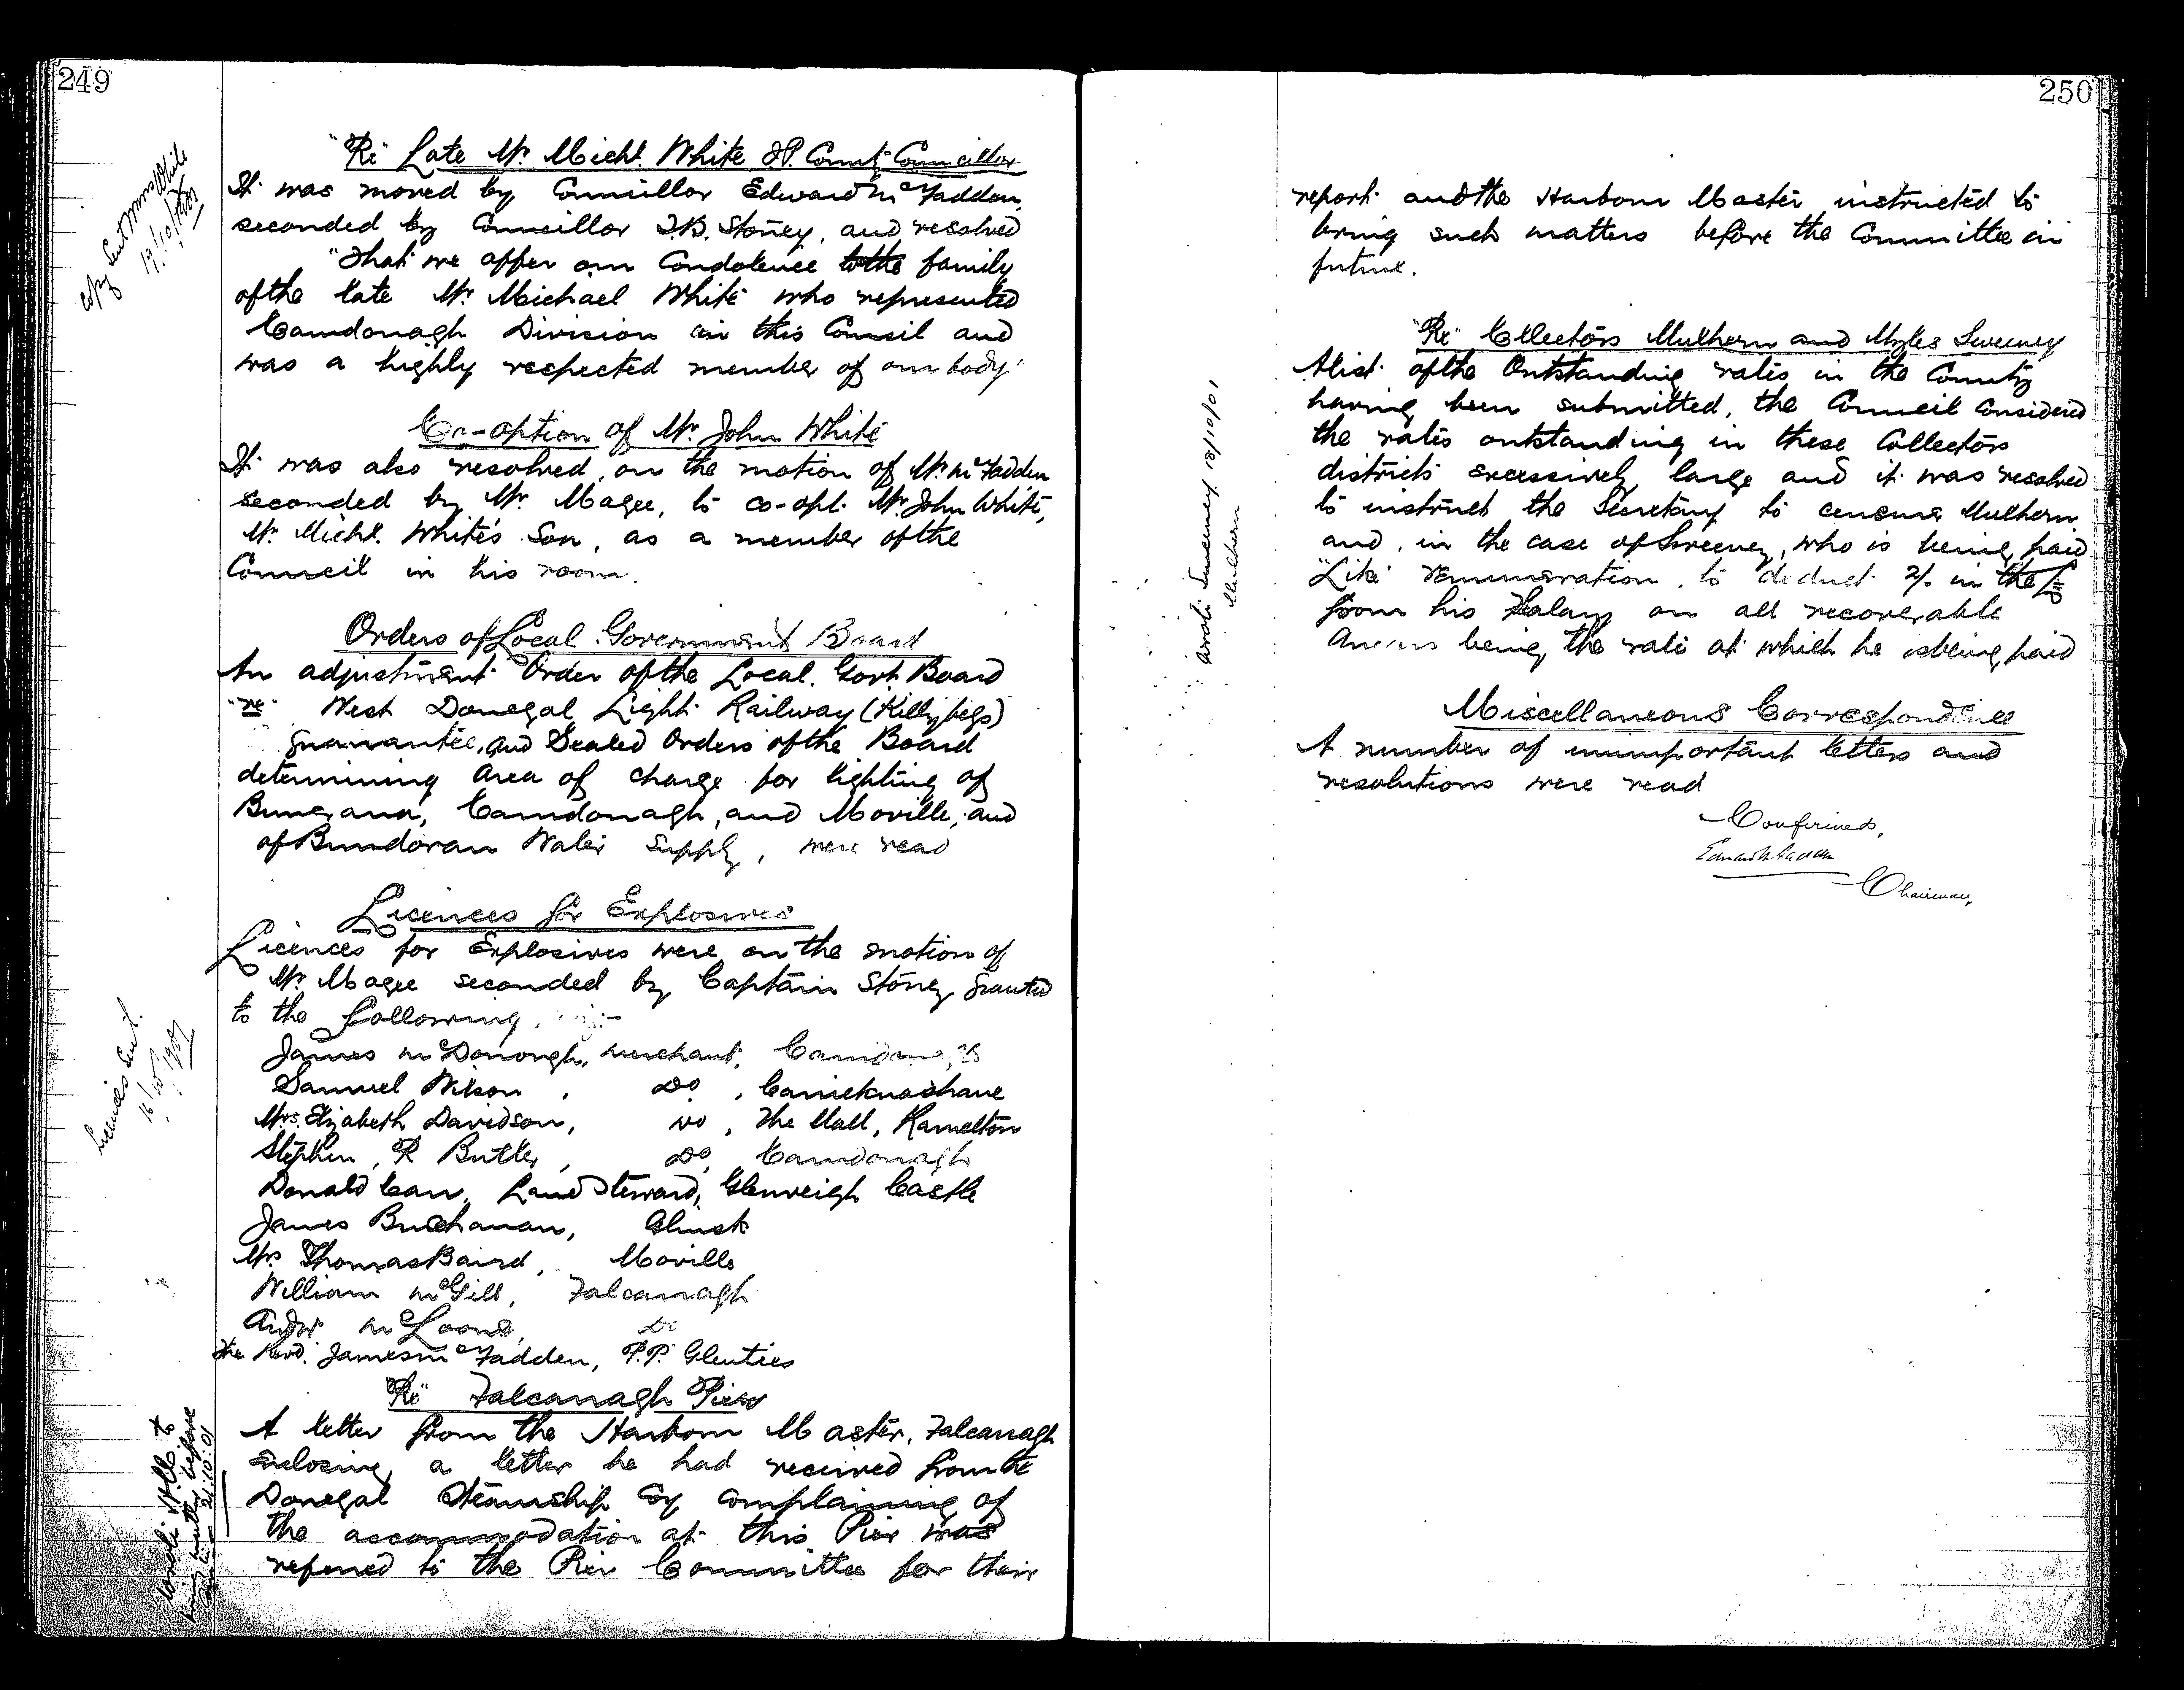 249
"Re" Late Mr. Michl. White J.P. County Councillor
It was moved by Councillor Edward McFadden,
seconded by Councillor T.B. Stoney, and resolved
"That we offer our Condolence to the family
of the late Mr. Michael White who represented
Carndonagh Division in this Council and
was a highly respected member of our body"
Copy Sent Mrs White
17/10/1901
Co-option of Mr. John White
It was also resolved, on the motion of Mr. McFadden
seconded by Mr. Magee, to co-opt Mr. John White,
Mr. Michl. White's Son, as a member of the
Council in his room.
Orders of Local Government Board
An adjustment Order of the Local Govt. Board
"re" West Donegal Light Railway (Killybegs)
guarantee, and Sealed Orders of the Board
determining area of charge for lighting of
Buncrana, Carndonagh, and Moville, and
of Bundoran Water Supply, were read
Licences for Explosives
Licences for Explosives were on the motion of
Mr. Magee seconded by Captain Stoney granted
to the following, viz:-
Licences Sent.
16/10/1901
James McDonough, merchant, Carndonagh
Samuel Wilson, Do, Carricknashane
Mrs. Elizabeth Davidson, Do, The Mall, Ramelton
Stephen R Butler, Do, Carndonagh
Donald Carr, Land Steward, Glenveigh Castle
James Buchanan, Gluck
Mr. Thomas Baird, Moville
William McGill, Falcarragh
Andw. McLoone, Do
The Revd. James McFadden, P.P. Glenties
"Re" Falcarragh Pier
A letter from the Harbour Master, Falcarragh
enclosing a letter he had received from the
Donegal Steamship Coy complaining of
the accommodation at this Pier was
referred to the Pier Committee for their
Wrote H.M. to
bring matters before
21.10.01
250
report and the Harbour Master instructed to
bring such matters before the Committee in
future.
"Re" Collectors Mulhern and Myles Sweeney
A list of the Outstanding rates in the County
having been submitted, the Council Considered
the rates outstanding in these Collectors
districts excessively large and it was resolved
to instruct the Secretary to censure Mulhern
and, in the case of Sweeney, who is being paid
"Like" remuneration, to deduct 2/. in the £
from his Salary on all recoverable
Arrears being the rate at which he is being paid
Wrote Sweeney 18/10/01
Mulhern
Miscellaneous Correspondence
A number of unimportant letters and
resolutions were read
Confirmed,
Edward McFadden
Chairman,